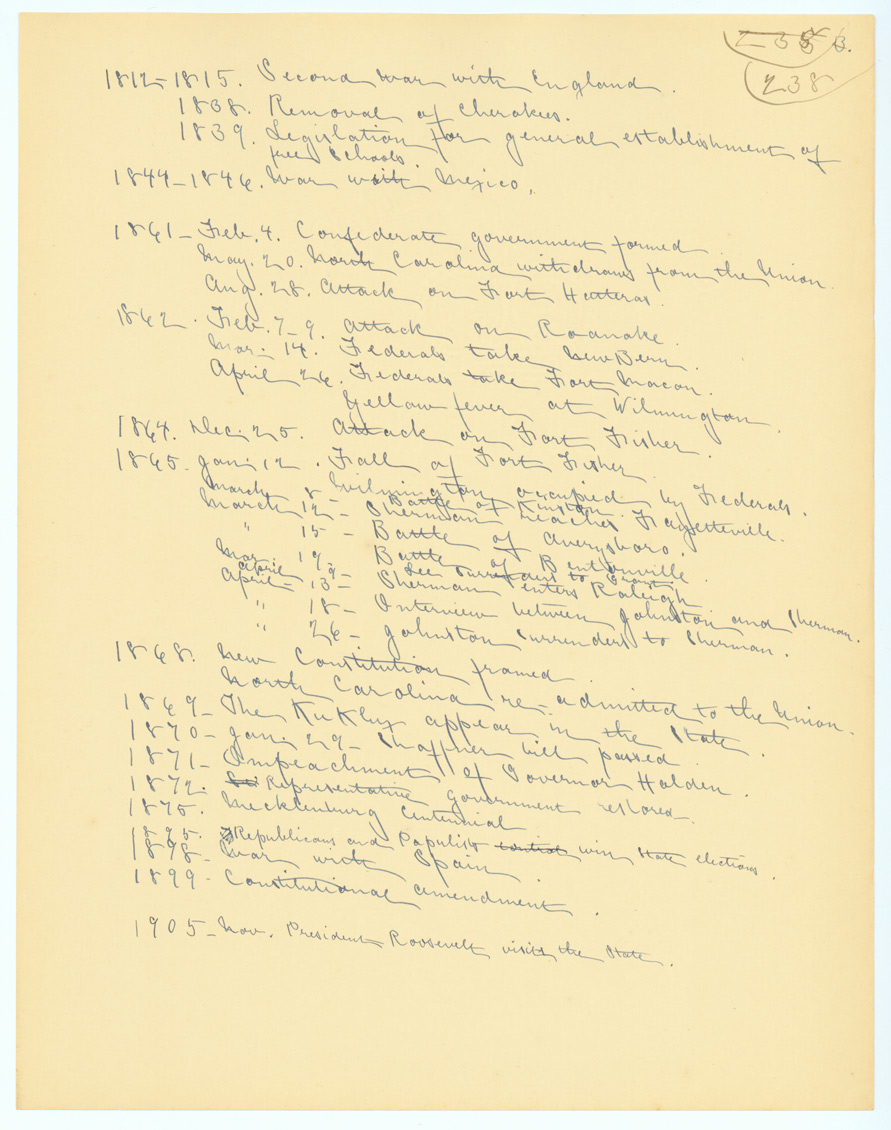 238
1812-1815. Second war with England.
1838. Removal of Cherokees.
1839. Legislation for general establishment of
free schools.
1844-1846. War with Mexico.
1861- Feb. 4. Confederate government formed
May. 20. North Carolina withdraws from the Union.
Aug. 28. Attack on Fort Hatteras.
1862. Feb. 7-9. Attack on Roanoke.
Mar. 14. Federals take New Bern.
April 26. Federals take Fort Macon.
Yellow fever at Wilmington.
1864. Dec. 25. Attack on Fort Fisher.
1865- Jan. 12. Fall of Fort Fisher
Wilmington occupied by Federals.
March 8- Battle of Kinston.
March 12- Sherman reaches Fayetteville.
" 15- Battle of Averysboro.
Mar. 19- Battle of Bentonville.
April 9- Lee surrenders to Grant.
April- 13- Sherman enters Raleigh
" 18- Interview between Johnston and Sherman.
" 26- Johnston surrenders to Sherman.
1868. New Constitution framed.
North Carolina re-admitted to the Union.
1869- The KuKlux appear in the State.
1870- Jan. 29- Shaffner bill passed.
1871- Impeachment of Governor Holden.
1872. Representative government restored.
1875. Mecklenburg Centennial
1895. Republicans and Populists control win State elections.
1898- War with Spain.
1899- Constitutional amendment.
1905- Nov. President Roosevelt visits the State.